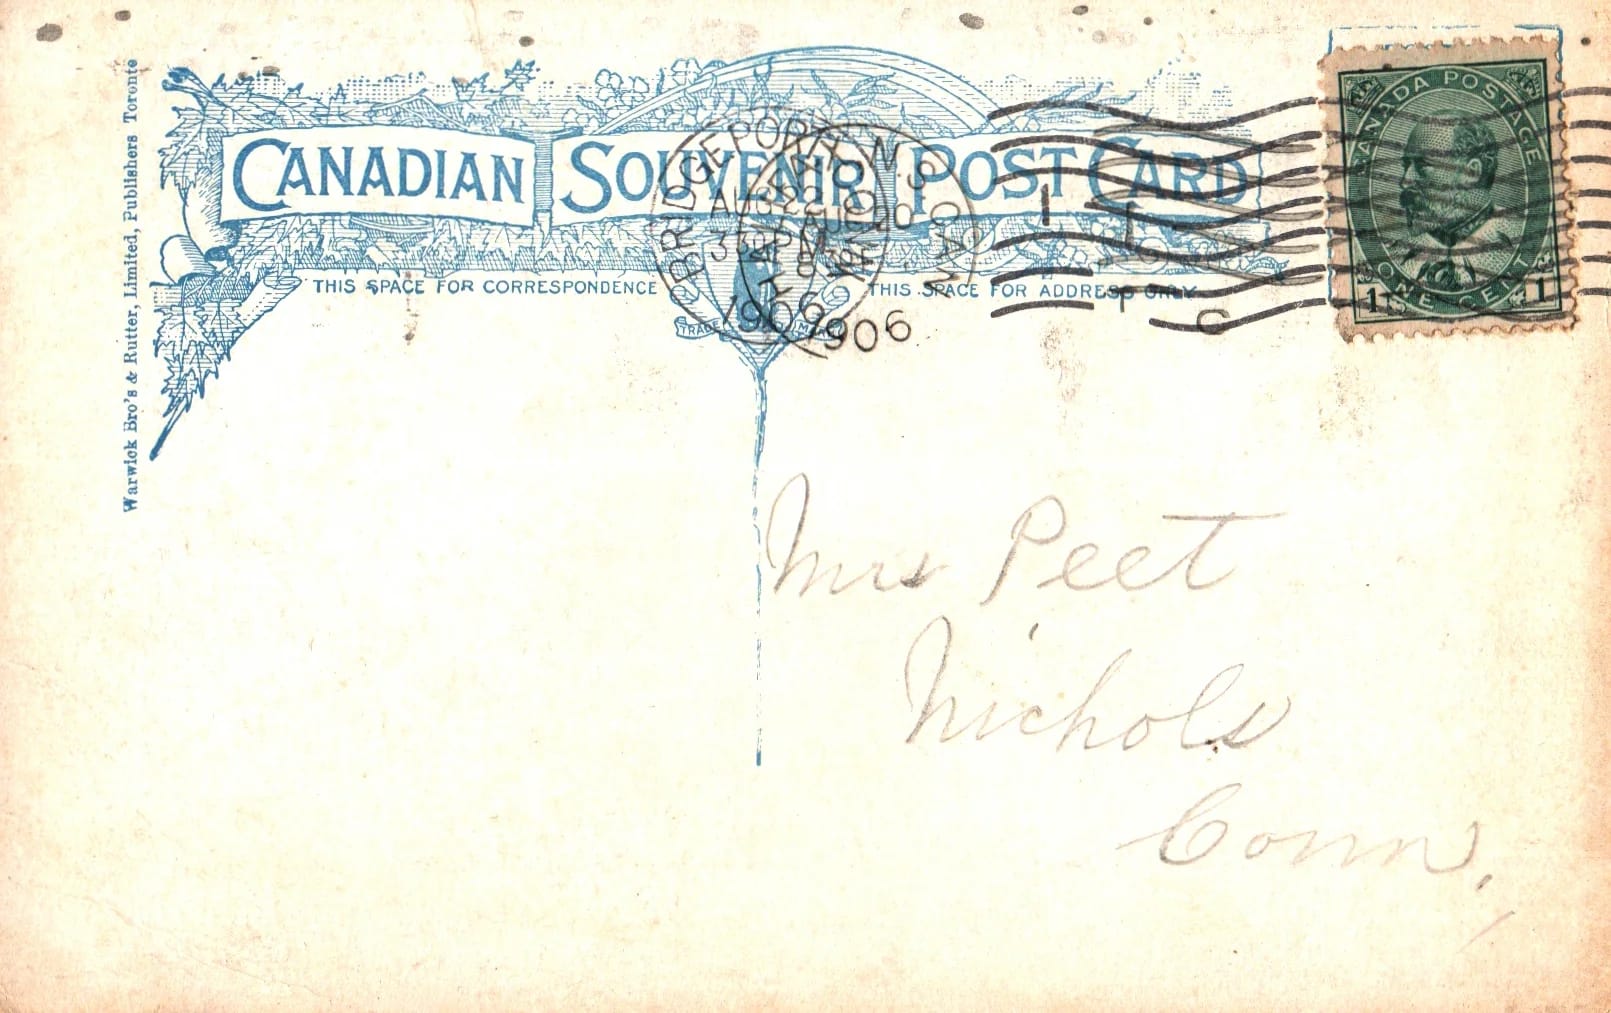 Warwick Bro's & Rutter, Limited, Publishers Toronto
CANADIAN SOUVENIR POST CARD
THIS SPACE FOR CORRESPONDENCE
THIS SPACE FOR ADDRESS ONLY
TRADE
BRIDGEPORT
1906
1906
CANADA POSTAGE
ONE CENT
1 1
Mrs Peet
Nichols
Conn.